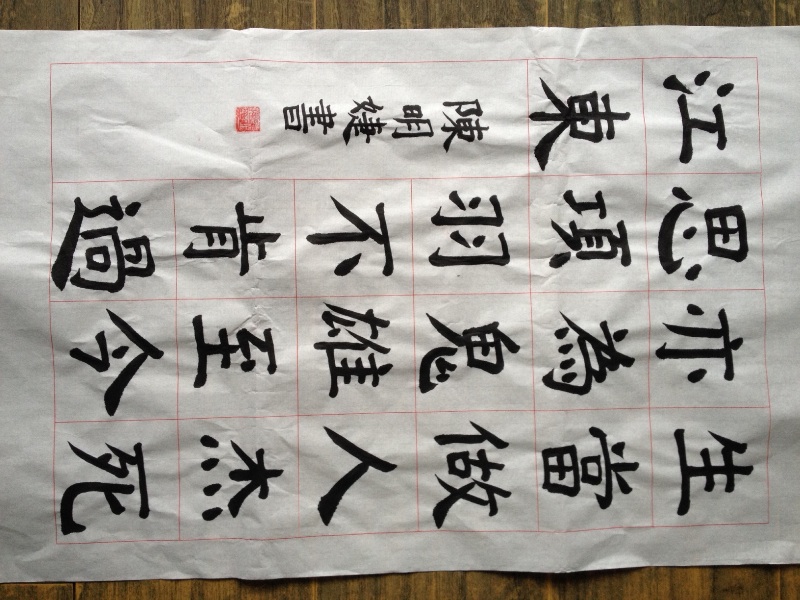 生當做人杰死
亦為鬼雄至今
思項羽不肯過
江東
陳明婕書